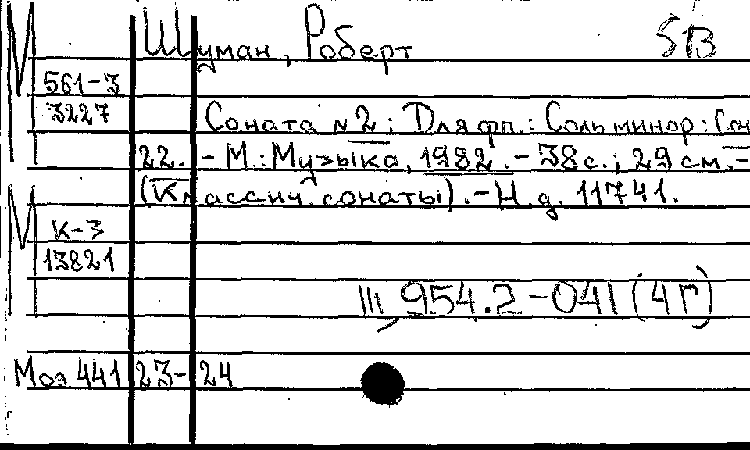 Шуман, Роберт 5В
М 561-3
3227
Соната №2: Для фп.: Соль минор: Соч
22. - М.: Музыка, 1982. - 38 с.; 29 см. -
(Классич. сонаты). - Н. д. 11741.
М К-3
13821
954.2-041 (4Г)
Моэ 441 23-24